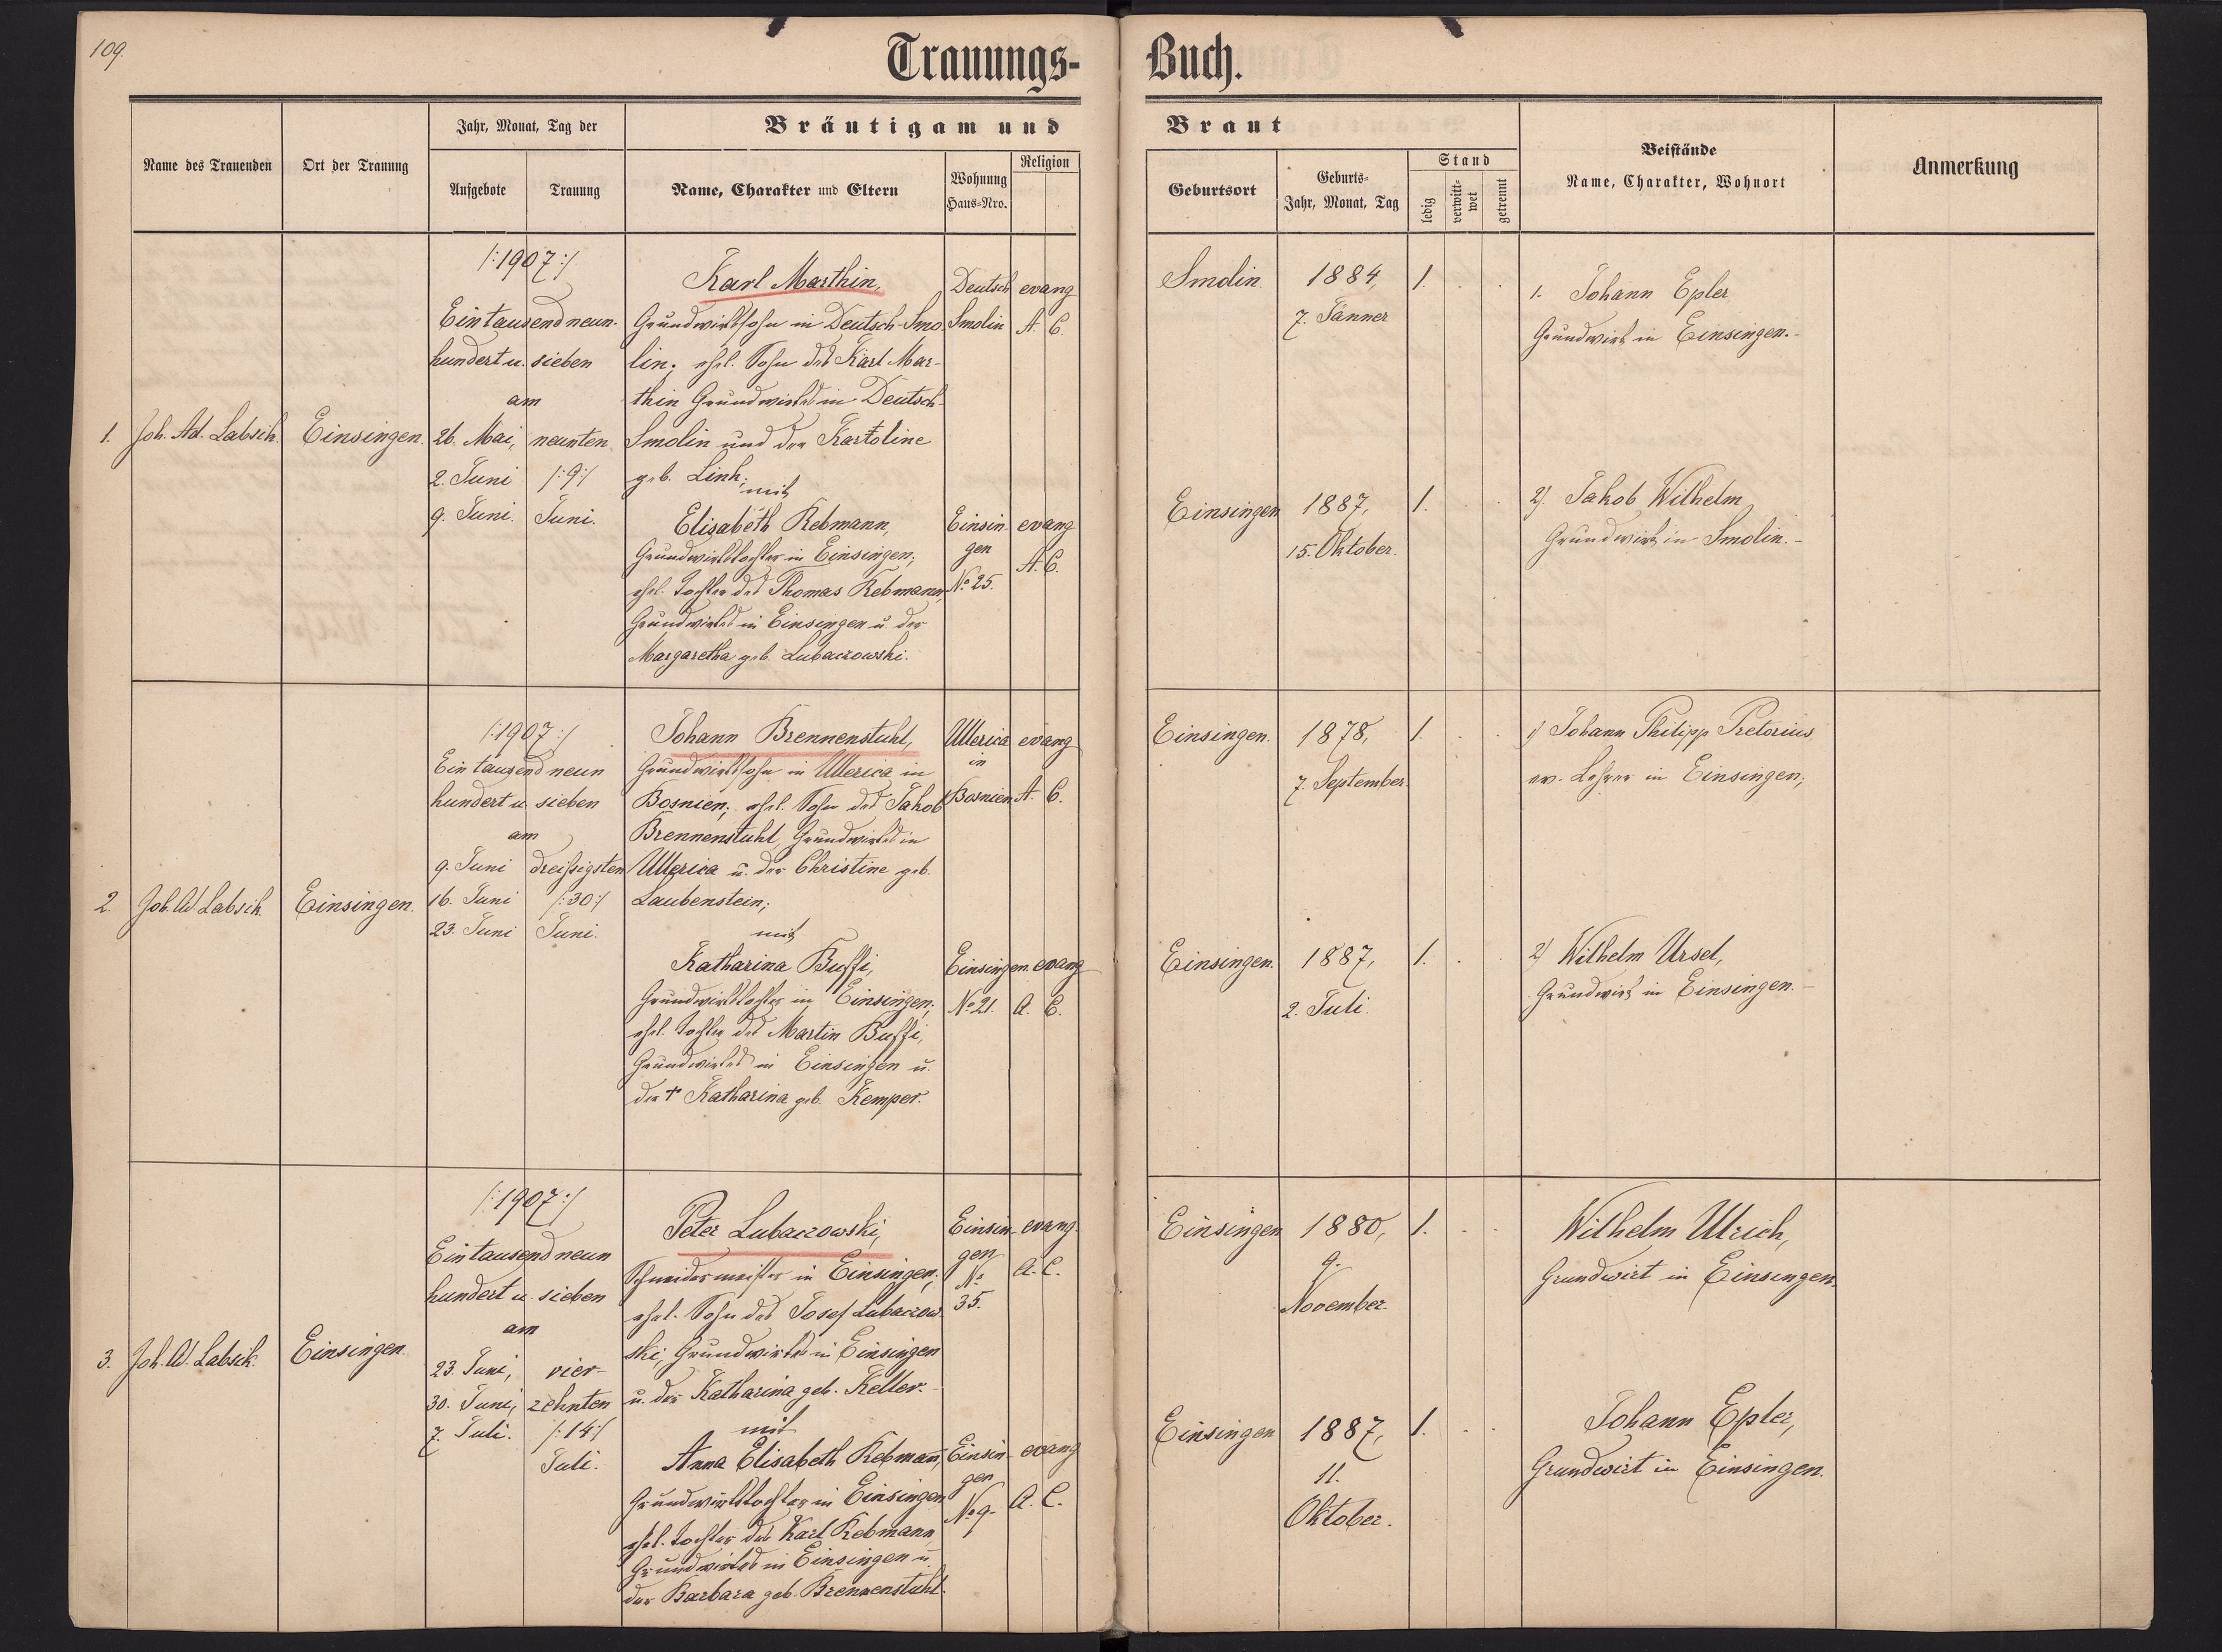 109.
Trauungs-
Buch.
Name des Trauenden
Ort der Trauung
Jahr, Monat, Tag der
Aufgebote
Trauung
Bräutigam und
Name, Charakter und Eltern
Wohnung
Haus-Nro.
Religion
Braut
Geburtsort
Geburts-
Jahr, Monat, Tag
Stand
ledig
verwitt-
wet
getrennt
Beistände
Name, Charakter, Wohnort
Anmerkung
1.
Joh. Ad. Labsik
Einsingen.
/:1907:/
Eintausendneun-
hundert u. sieben
am
26. Mai,
2. Juni
9. Juni.
neunten
/:9:/
Juni.
Karl Marthin,
Grundwirtssohn in Deutsch-Smo-
lin; ehel. Sohn des Karl Mar-
thin Grundwirtes in Deutsch-
Smolin und der Karoline
geb. Link;
mit
Elisabeth Rebmann,
Grundwirtstochter in Einsingen;
ehel. Tochter des Thomas Rebmann,
Grundwirtes in Einsingen u. der
Margaretha geb. Lubaczowski.
Deutsch
Smolin
evang
A. C.
Einsin
gen
No 25.
evang
A. C.
Smolin
1884,
7. Jänner
1.
Einsingen
1887,
15. Oktober.
1.
1. Johann Epler,
Grundwirt in Einsingen.-
2). Jakob Wilhelm,
Grundwirt in Smolin.-
2.
Joh. Ad. Labsik.
Einsingen.
/:1907:/
Eintausendneun
hundert u. sieben
am
9. Juni
16. Juni
23. Juni
dreißigsten
/:30:/
Juni.
Johann Brennenstuhl,
Grundwirtssohn in Ullerica in
Bosnien; ehel. Sohn des Jakob
Brennenstuhl, Grundwirtes in
Ullerica u. der Christine geb.
Laubenstein;
mit
Katharina Buffi,
Grundwirtstochter in Einsingen;
ehel. Tochter des Martin Buffi,
Grundwirtes in Einsingen u.
der † Katharina geb. Kemper.
Ullerica
in
Bosnien
evang
A. C.
Einsingen.
No 21.
evang
A. C.
Einsingen.
1878,
7. September.
1.
Einsingen.
1887,
2. Juli.
1.
1) Johann Philipp Pretorius,
ev. Lehrer in Einsingen;
2) Wilhelm Ursel,
Grundwirt in Einsingen.-
3.
Joh. Ad. Labsik.
Einsingen.
/:1907:/
Eintausendneun
hundert u. sieben
am
23. Juni,
30. Juni,
7. Juli.
vier-
zehnten
/:14:/
Juli.
Peter Lubaczowski,
Schneidermeister in Einsingen;
ehel. Sohn des Josef Lubaczow-
ski, Grundwirtes in Einsingen
u. der Katharina geb. Keller.
mit
Anna Elisabeth Rebmann,
Grundwirtstochter in Einsingen
ehel. Tochter des Karl Rebmann
Grundwirtes in Einsingen u.
der Barbara geb. Brennenstuhl.
Einsin-
gen
No
35.
evang.
A. C.
Einsin-
gen
No 9.
evang
A. C.
Einsingen
1880,
9.
November.
1.
Einsingen
1887,
11.
Oktober.
1.
Wilhelm Ulrich,
Grundwirt in Einsingen.
Johann Epler,
Grundwirt in Einsingen.